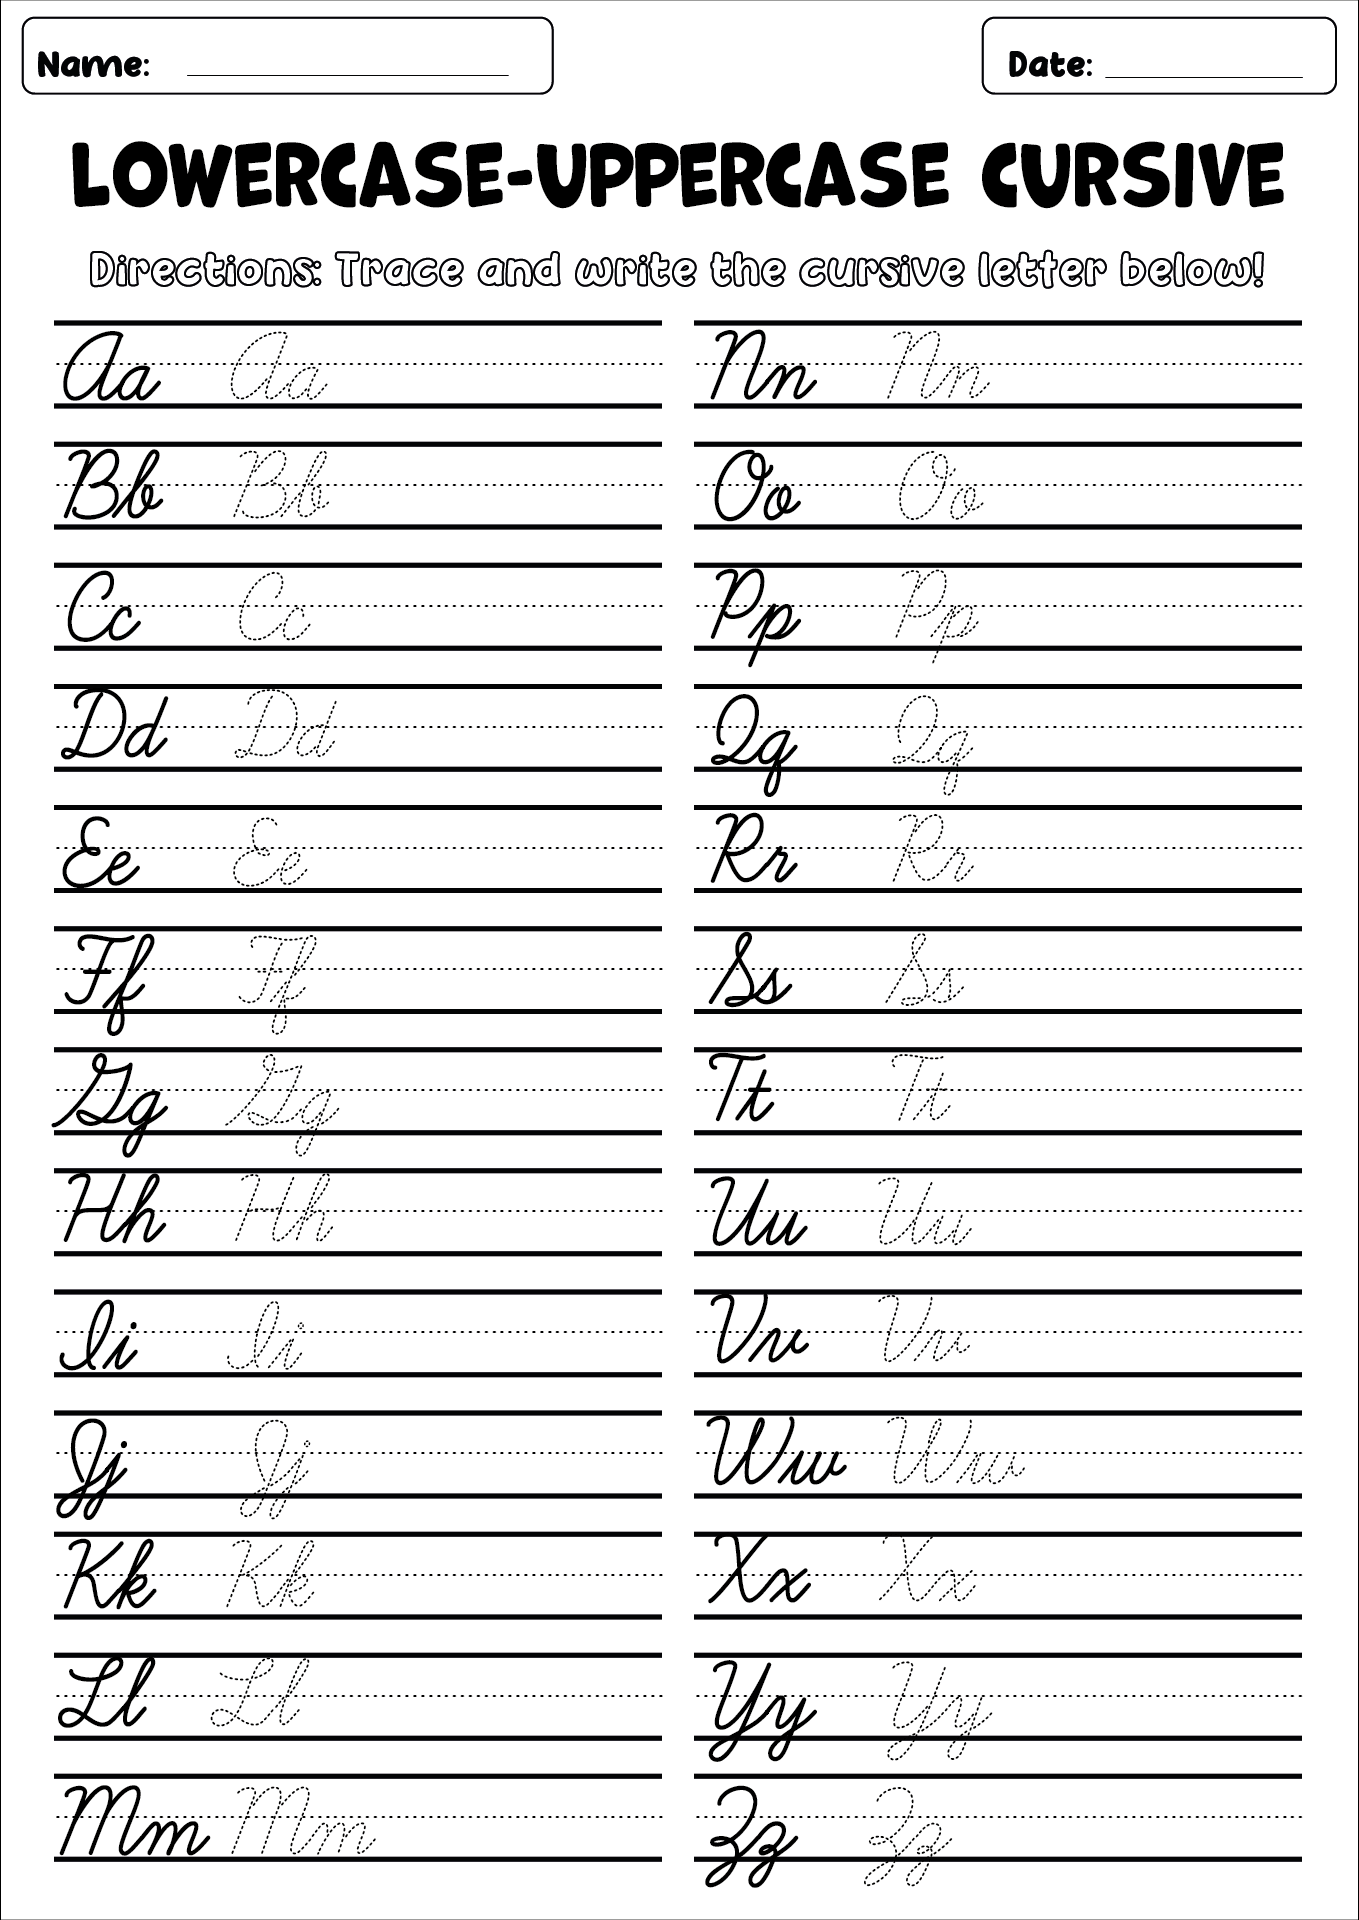 Name: Date:
LOWERCASE-UPPERCASE CURSIVE
Directions: Trace and write the cursive letter below!
Aa Aa
Bb Bb
Cc Cc
Dd Dd
Ee Ee
Ff Ff
Gg Gg
Hh Hh
Ii Ii
Jj Jj
Kk Kk
Ll Ll
Mm Mm
Nn Nn
Oo Oo
Pp Pp
Qq Qq
Rr Rr
Ss Ss
Tt Tt
Uu Uu
Vv Vv
Ww Ww
Xx Xx
Yy Yy
Zz Zz